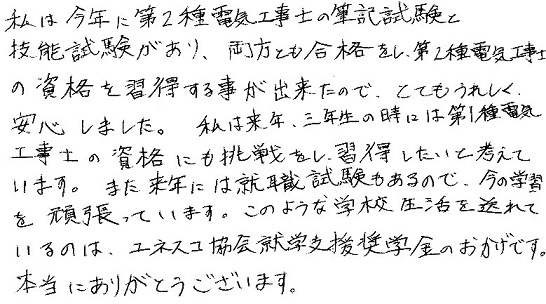 私は今年に第2種電気工事士の筆記試験と
技能試験があり、両方とも合格をし、第2種電気工事士
の資格を習得する事が出来たので、とてもうれしく、
安心しました。 私は来年、三年生の時には第1種電気
工事士の資格にも挑戦をし、習得したいと考えて
います。 また来年には就職試験もあるので、今の学習
を頑張っています。このような学校生活を送れて
いるのは、ユネスコ協会就学支援奨学金のおかげです。
本当にありがとうございます。